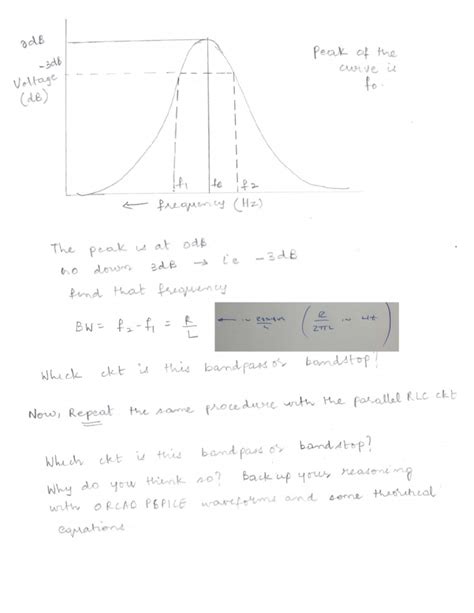 0dB
Peak of the
-3dB
curve is
Voltage
fo.
(dB)
f1 fc f2
← frequency (Hz)
The peak is at 0dB
Go down 3dB → i.e -3dB
find that frequency
BW = f2 - f1 = R/L ← in (R/2πL in Hz)
Which ckt is this bandpass or bandstop?
Now, Repeat the same procedure with the parallel RLC ckt
Which ckt is this bandpass or bandstop?
Why do you think so? Back up your reasoning
with ORCAD PSPICE waveforms and some theoritical
equations